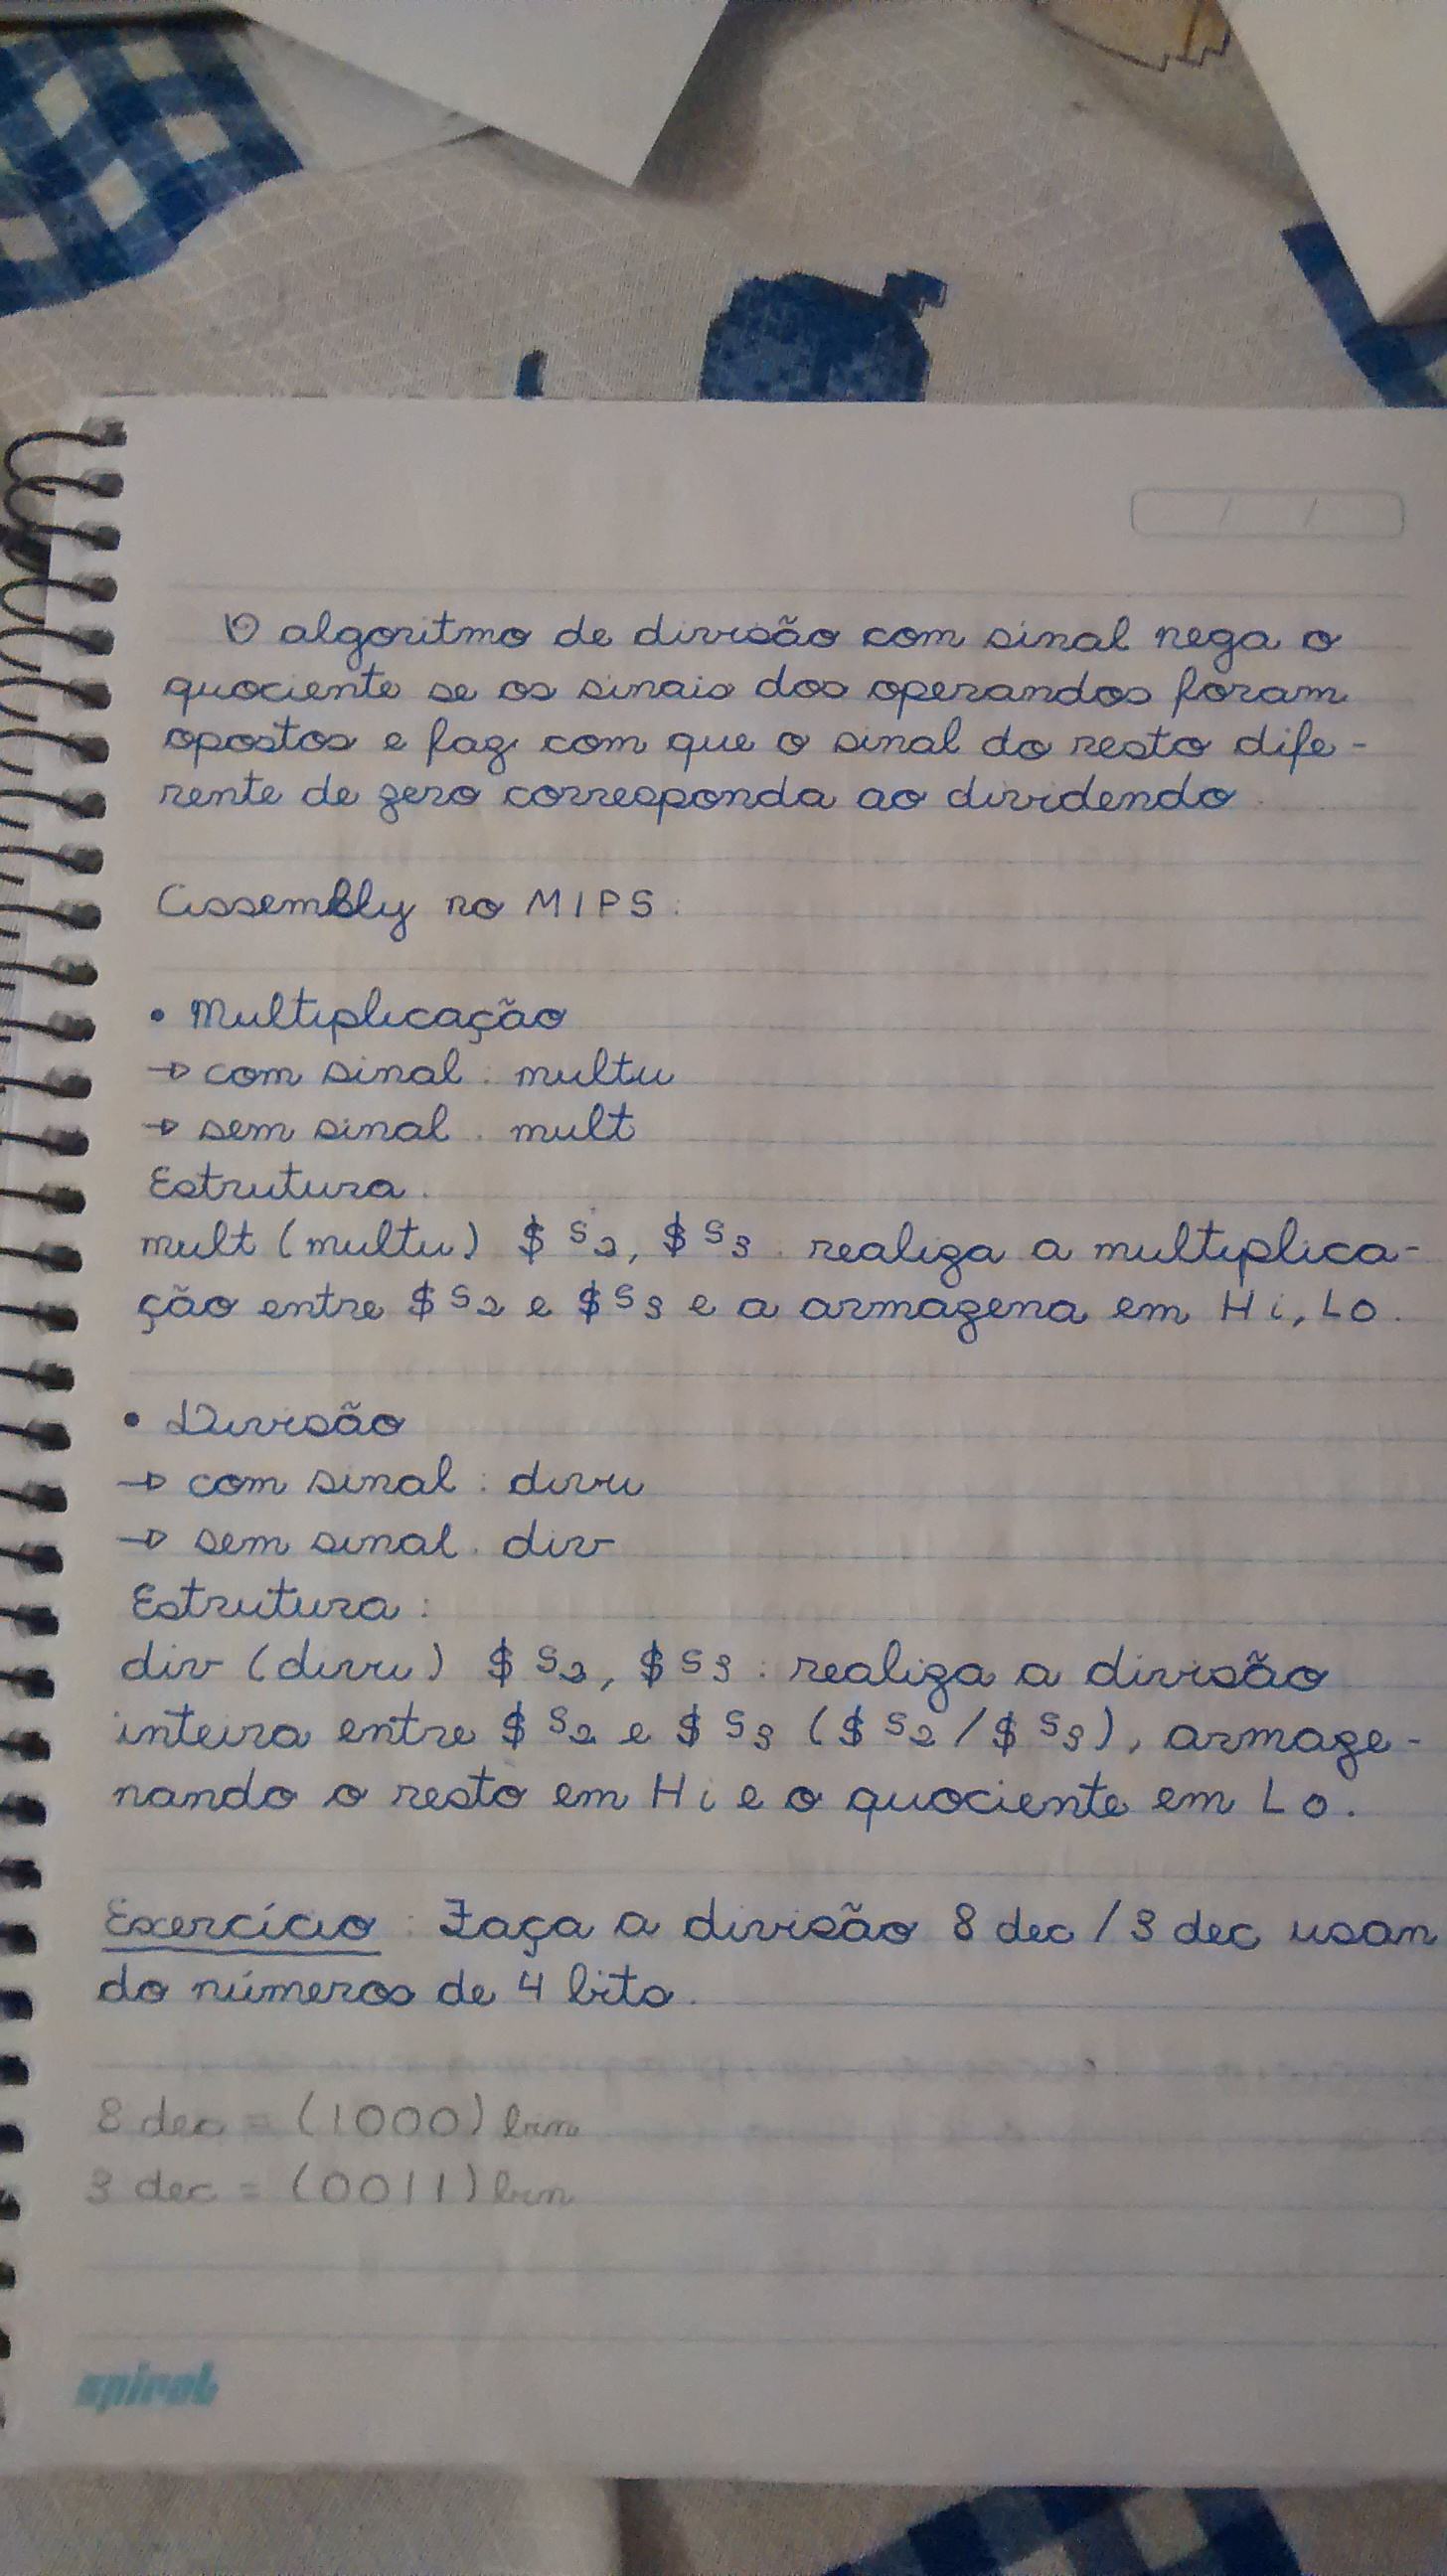 O algoritmo de divisão com sinal nega o
quociente se os sinais dos operandos foram
opostos e faz com que o sinal do resto dife-
rente de zero corresponda ao dividendo.
Assembly no MIPS:
• Multiplicação
→ com sinal: multu
→ sem sinal: mult
Estrutura:
mult (multu) $s2, $s3: realiza a multiplica-
ção entre $s2 e $s3 e a armazena em Hi, Lo.
• Divisão
→ com sinal: divu
→ sem sinal: div
Estrutura:
div (divu) $s2, $s3: realiza a divisão
inteira entre $s2 e $s3 ($s2/$s3), armaze-
nando o resto em Hi e o quociente em Lo.
Exercício: Faça a divisão 8 dec / 3 dec usan
do números de 4 bits.
8 dec = (1000) bin
3 dec = (0011) bin
spiral